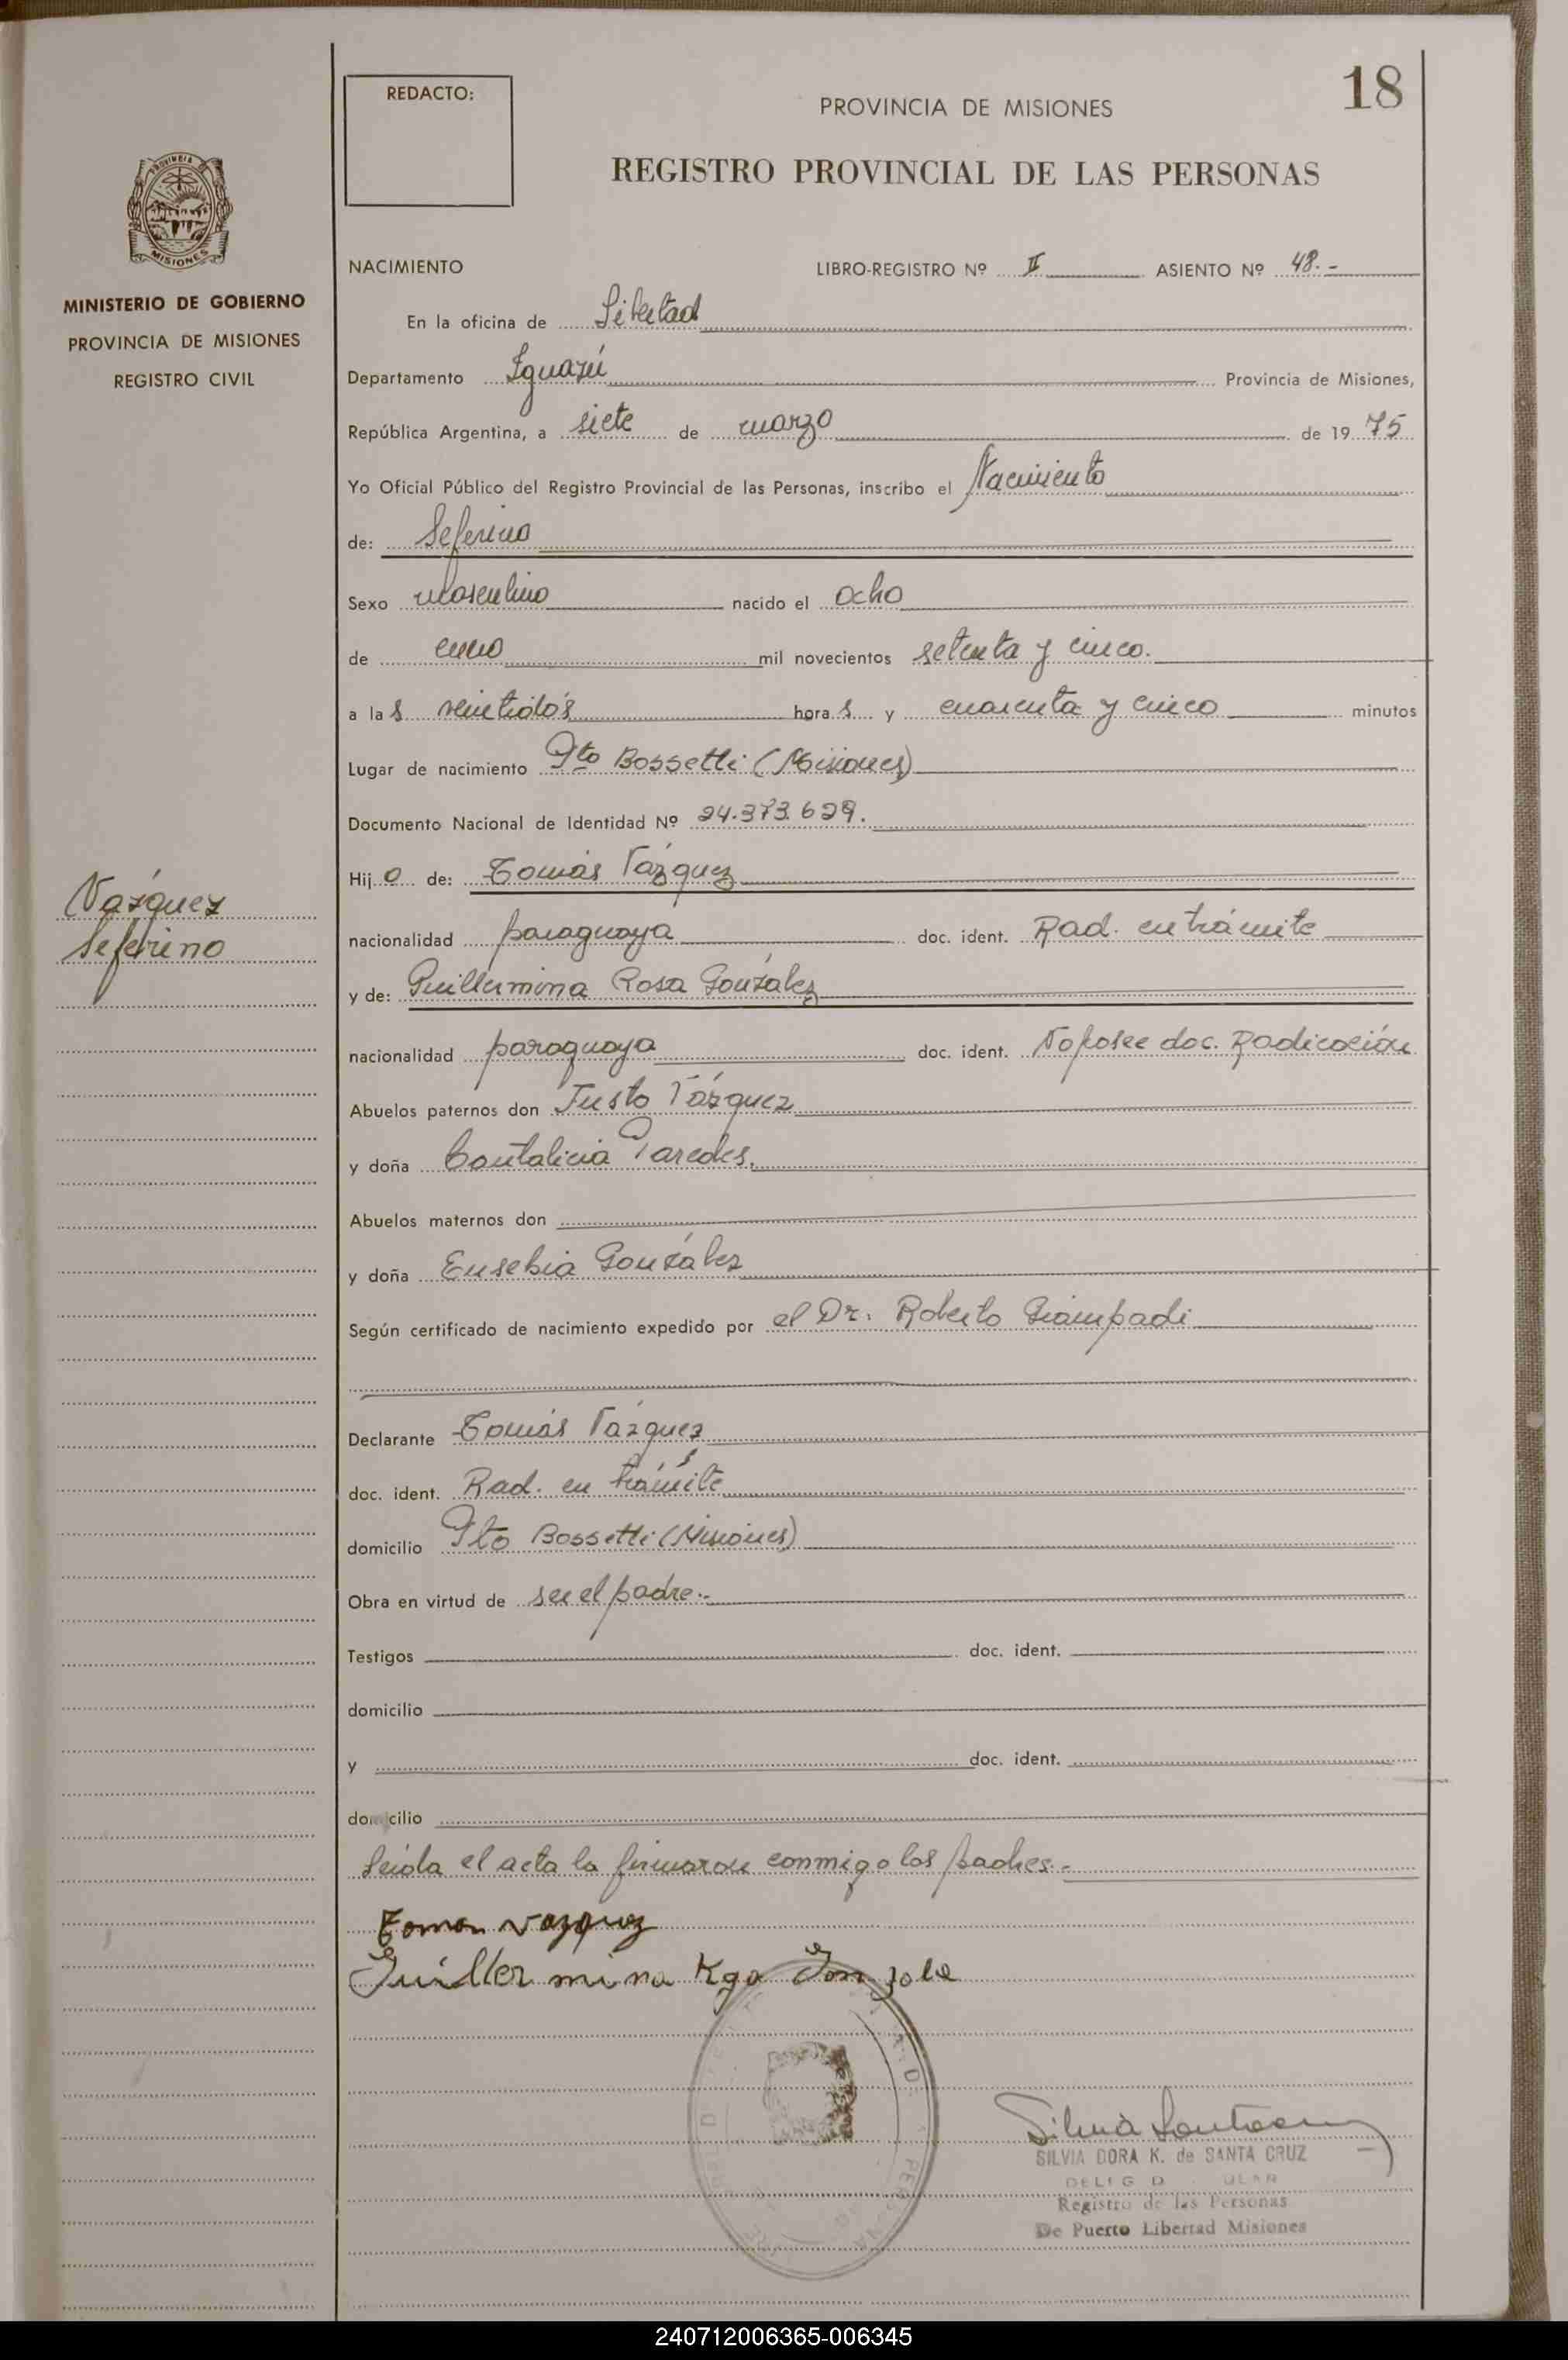 18
REDACTO:
PROVINCIA DE MISIONES
REGISTRO PROVINCIAL DE LAS PERSONAS
PROVINCIA
MISIONES
MINISTERIO DE GOBIERNO
PROVINCIA DE MISIONES
REGISTRO CIVIL
NACIMIENTO LIBRO-REGISTRO Nº II ASIENTO Nº 48.-
En la oficina de Libertad
Departamento Iguazú Provincia de Misiones,
República Argentina, a siete de marzo de 1975
Yo Oficial Público del Registro Provincial de las Personas, inscribo el Nacimiento
de: Seferino
Sexo masculino nacido el ocho
de enero mil novecientos setenta y cinco.
a las veintidós horas y cuarenta y cinco minutos
Lugar de nacimiento Pto Bossetti (Misiones)
Documento Nacional de Identidad Nº 24.373.629.
Hijo de: Tomás Vázquez
Vázquez
Seferino
nacionalidad paraguaya doc. ident. Rad. en trámite
y de: Guillermina Rosa González
nacionalidad paraguaya doc. ident. No posee doc. Radicación
Abuelos paternos don Justo Vázquez
y doña Cantalicia Paredes.
Abuelos maternos don
y doña Eusebia González
Según certificado de nacimiento expedido por el Dr. Roberto Giampadi
Declarante Tomás Vázquez
doc. ident. Rad. en trámite
domicilio Pto Bossetti (Misiones)
Obra en virtud de ser el padre.-
Testigos doc. ident.
domicilio
y doc. ident.
domicilio
Leída el acta la firmaron conmigo los padres.-
Tomas Vazquez
Guillermina
SILVIA DORA K. de SANTA CRUZ
Registro de las Personas
De Puerto Libertad Misiones
240712006365-006345